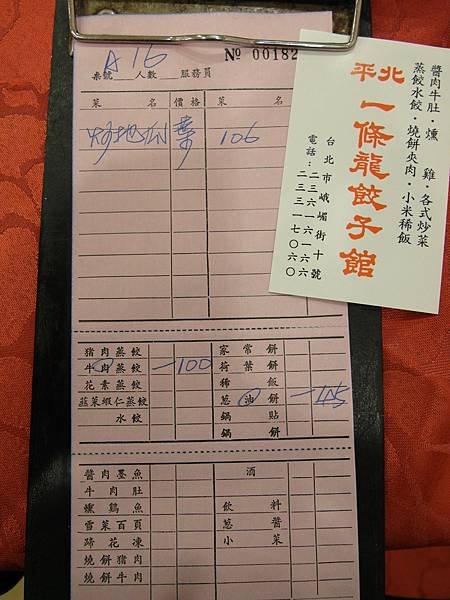 A16
№ 00182
桌號 人數 服務員
菜 名 價格 菜 名
炒地瓜葉 106
豬肉蒸餃
牛肉蒸餃 一 100
花素蒸餃
韮菜蝦仁蒸餃
水餃
家常餅
荷葉餅
稀飯
葱油餅 一
鍋貼
鍋餅
醬肉墨魚
牛肉肚
燻鷄魚
雪菜百頁
蹄花凍
燒餅豬肉
燒餅牛肉
酒
飲料
葱醬
小菜
醬肉牛肚·燻雞·各式炒菜
蒸餃水餃·燒餅夾肉·小米稀飯
北平
一條龍餃子館
台北市峨嵋街十號
電話:二三六一六一六六
二三三一七〇六〇